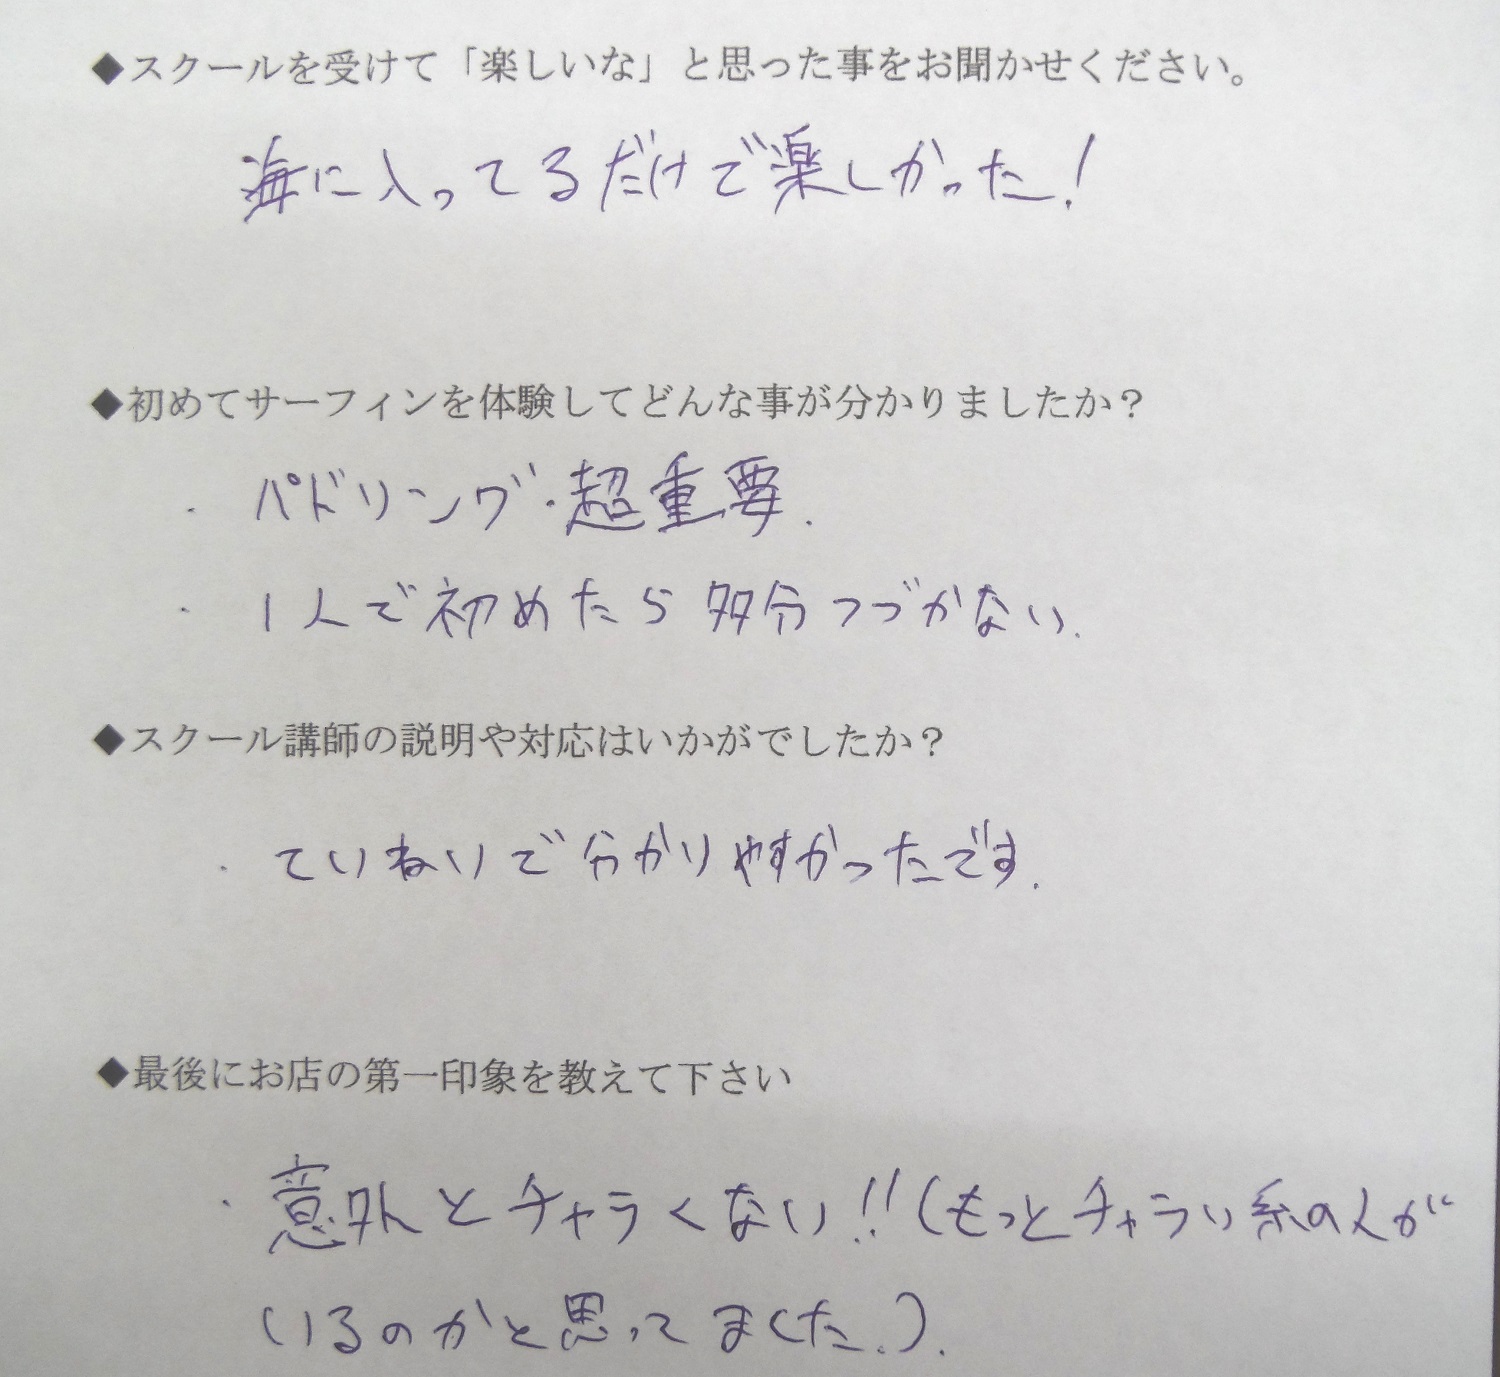 ◆スクールを受けて「楽しいな」と思った事をお聞かせください。
海に入ってるだけで楽しかった！
◆初めてサーフィンを体験してどんな事が分かりましたか？
・パドリング・超重要.
・1人で初めたら多分つづかない.
◆スクール講師の説明や対応はいかがでしたか？
・ていねいで分かりやすかったです.
◆最後にお店の第一印象を教えて下さい
・意外とチャラくない!!(もっとチャラい系の人が
いるのかと思ってました.).